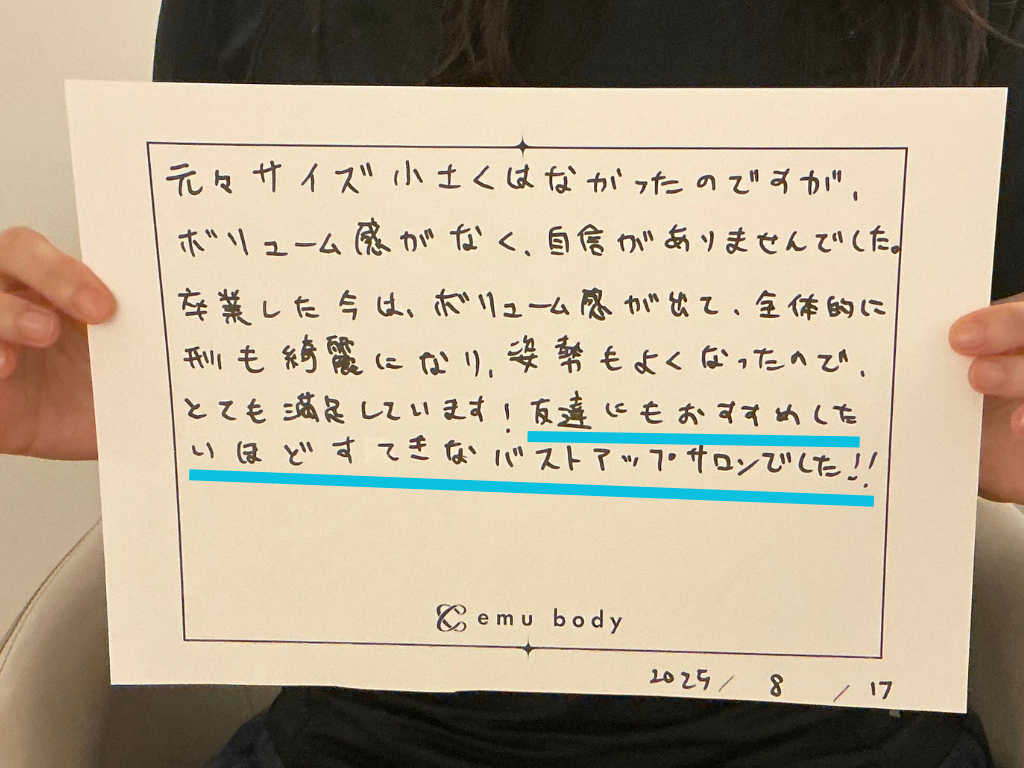 元々サイズ小さくはなかったのですが、
ボリューム感がなく、自信がありませんでした。
卒業した今は、ボリューム感が出て、全体的に
形も綺麗になり、姿勢もよくなったので、
とても満足しています！友達にもおすすめした
いほどすてきなバストアップサロンでした!!
emu body
2025/ 8 / 17